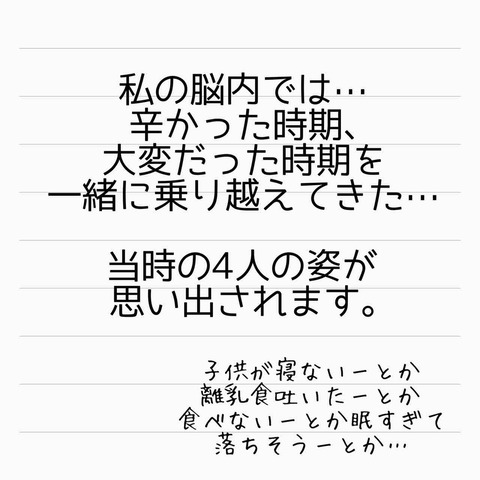 私の脳内では…
辛かった時期、
大変だった時期を
一緒に乗り越えてきた…
当時の4人の姿が
思い出されます。
子供が寝ないーとか
離乳食吐いたーとか
食べないーとか眠すぎて
落ちそうーとか…